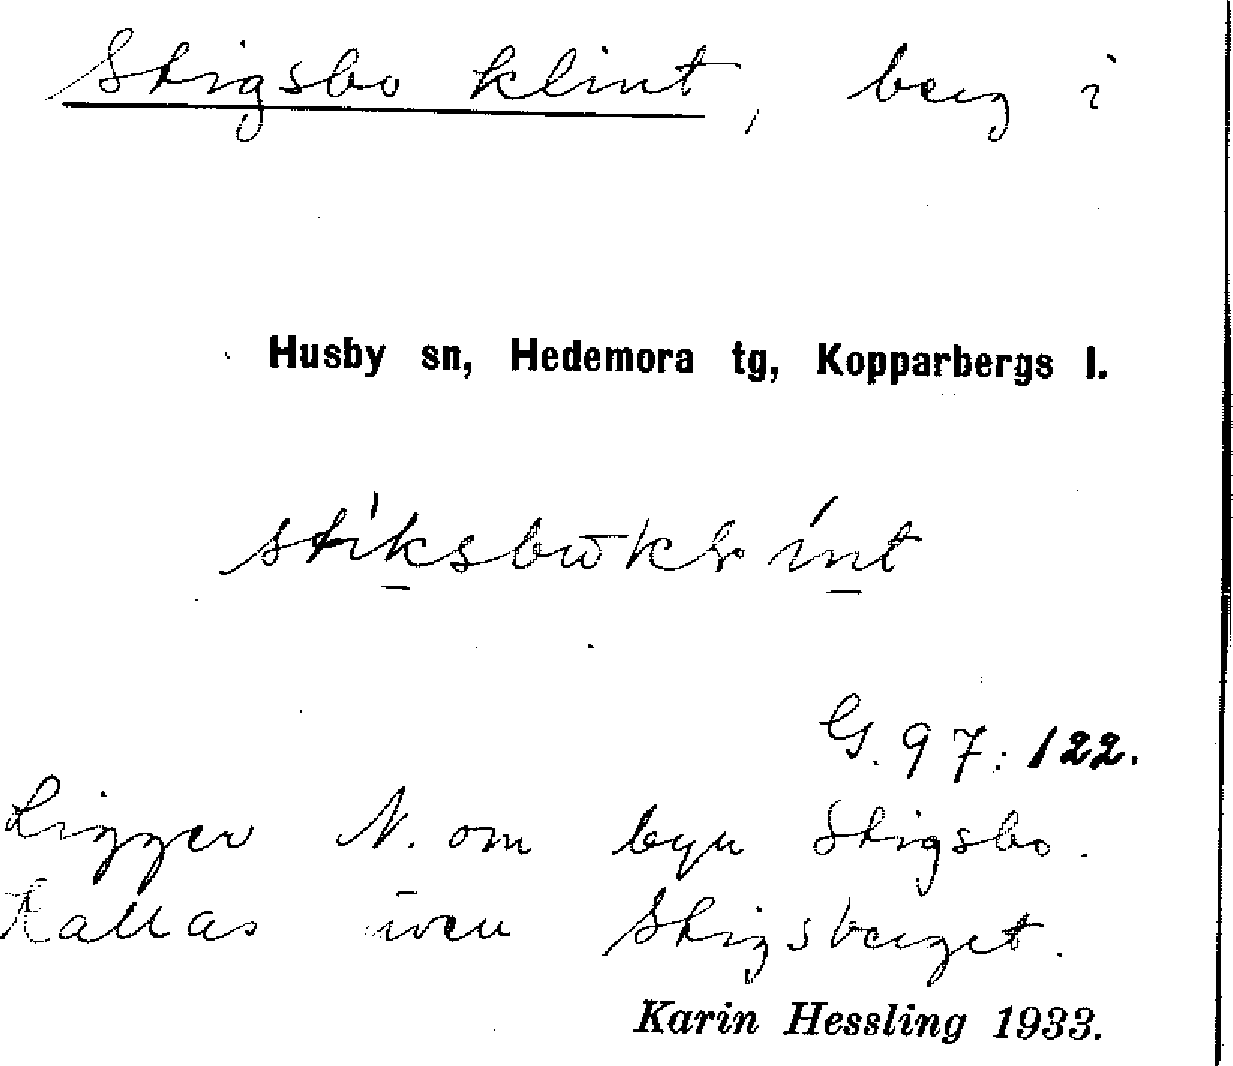 Stigsbo klint, berg i
Husby sn, Hedemora tg, Kopparbergs l.
G. 97: 122.
Ligger N. om byn Stigsbo.
Kallas även Stigsberget.
Karin Hessling 1933.